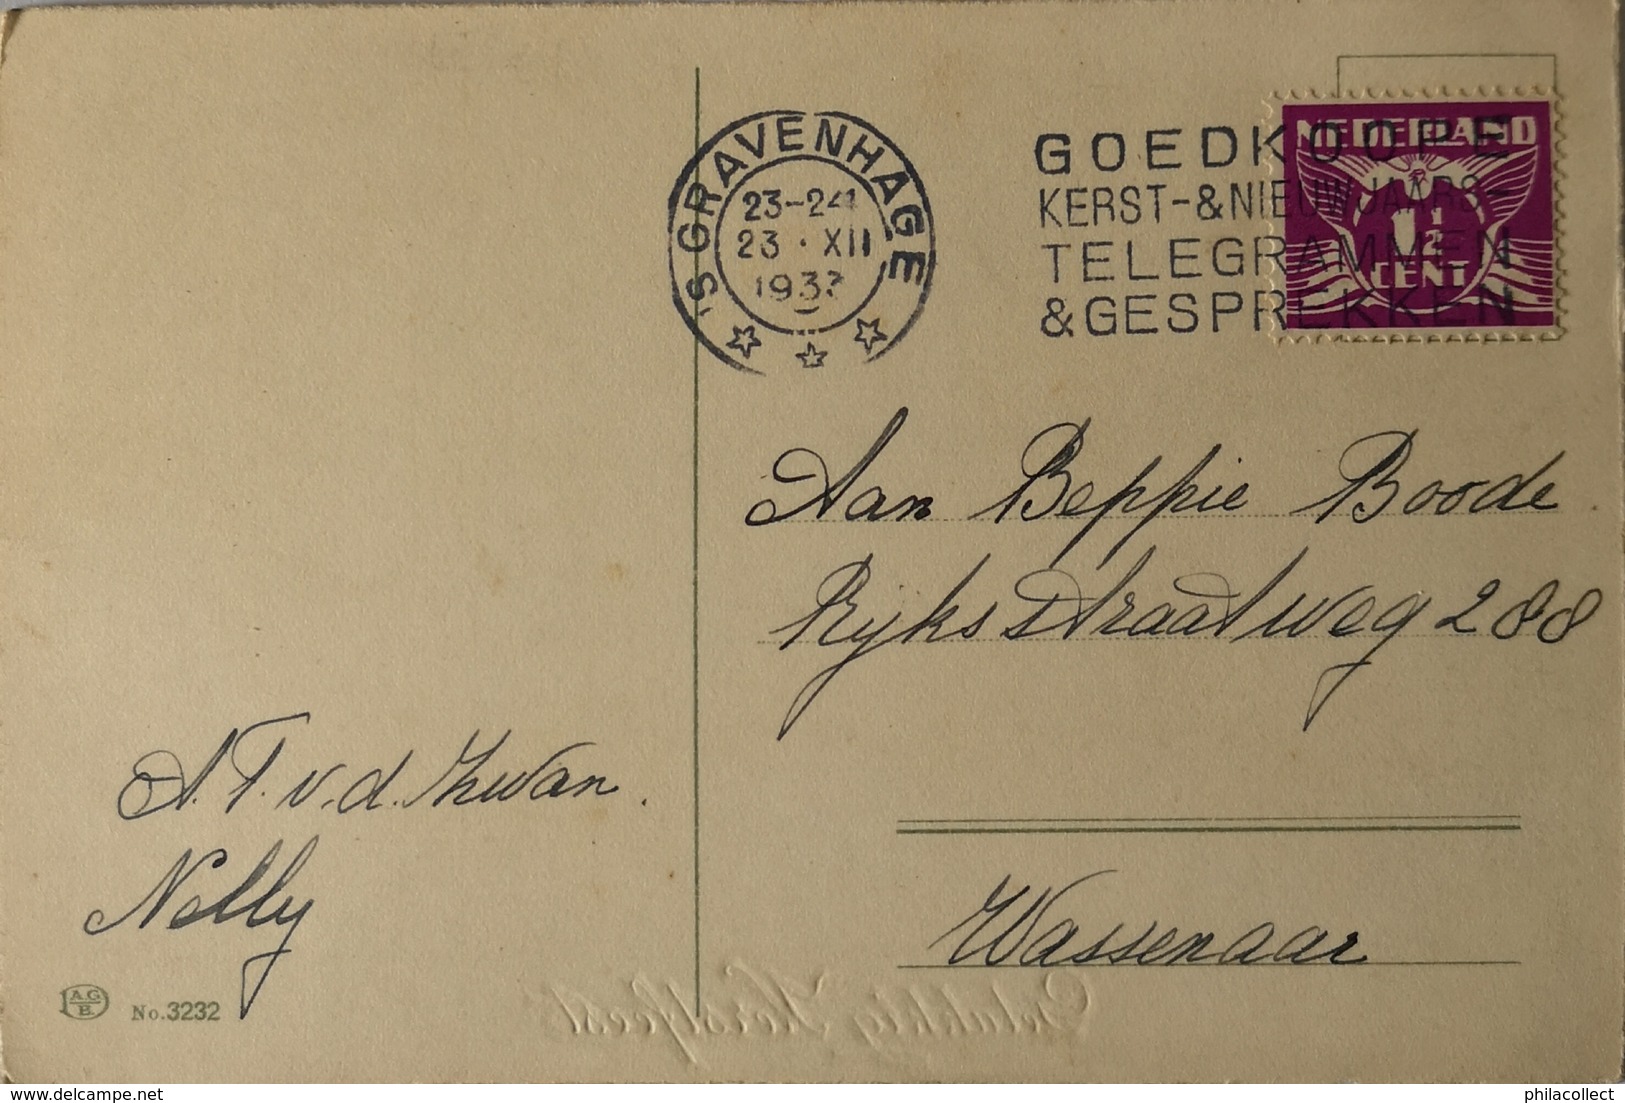 'S GRAVENHAGE
23-24
23 · XII
193
GOEDKOOPE
KERST-& NIEUWJAARS-
TELEGRAMMEN
& GESPREKKEN
NEDERLAND
1½
CENT
Aan Beppie Boode
Rijksstraatweg 288
Wassenaar
A.T. v.d. Zwan.
Nelly
A.G.
B.
No. 3232
Gelukkig Kerstfeest
delcampe.net
philacollect